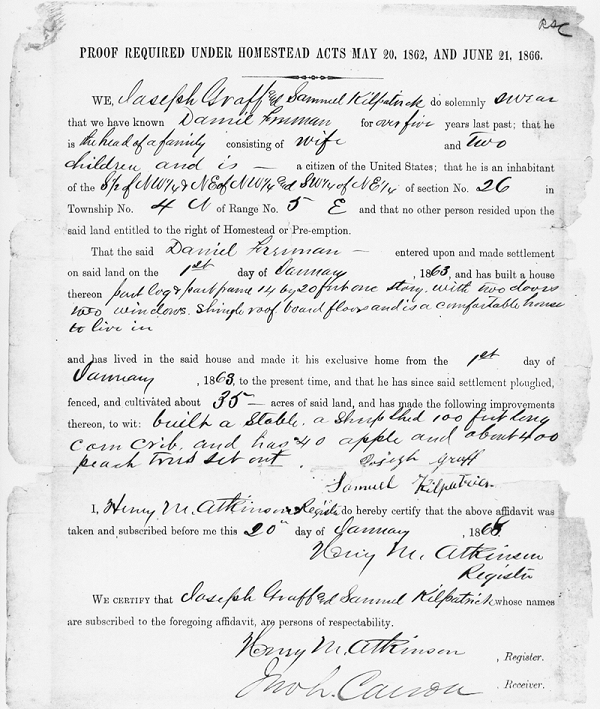 PROOF REQUIRED UNDER HOMESTEAD ACTS MAY 20, 1862, AND JUNE 21, 1866.
WE, Joseph Graff & Samuel Kilpatrick do solemnly swear
that we have known Daniel Freeman for over five years last past; that he
is the head of a family consisting of wife and two
children and is — a citizen of the United States; that he is an inhabitant
of the S½ of NW¼ & NE of NW¼ & SW¼ of NE¼ of section No. 26 in
Township No. 4 N of Range No. 5 E and that no other person resided upon the
said land entitled to the right of Homestead or Pre-emption.
That the said Daniel Freeman — entered upon and made settlement
on said land on the 1st day of January , 1863, and has built a house
thereon part log & part frame 14 by 20 feet one story. with two doors
two windows. shingle roof board floors and is a comfortable house
to live in
and has lived in the said house and made it his exclusive home from the 1st day of
January , 1863, to the present time, and that he has since said settlement ploughed,
fenced, and cultivated about 35 — acres of said land, and has made the following improvements
thereon, to wit: built a Stable. a Sheep shed 100 feet long
Corn Crib. and has 40 apple and about 400
peach trees set out.
Joseph Graff
Samuel Kilpatrick
I, Henry M. Atkinson Register do hereby certify that the above affidavit was
taken and subscribed before me this 20" day of January , 1868
Henry M. Atkinson
Register
WE CERTIFY that Joseph Graff & Samuel Kilpatrick whose names
are subscribed to the foregoing affidavit, are persons of respectability.
Henry M. Atkinson , Register.
Jno L. Carson , Receiver.